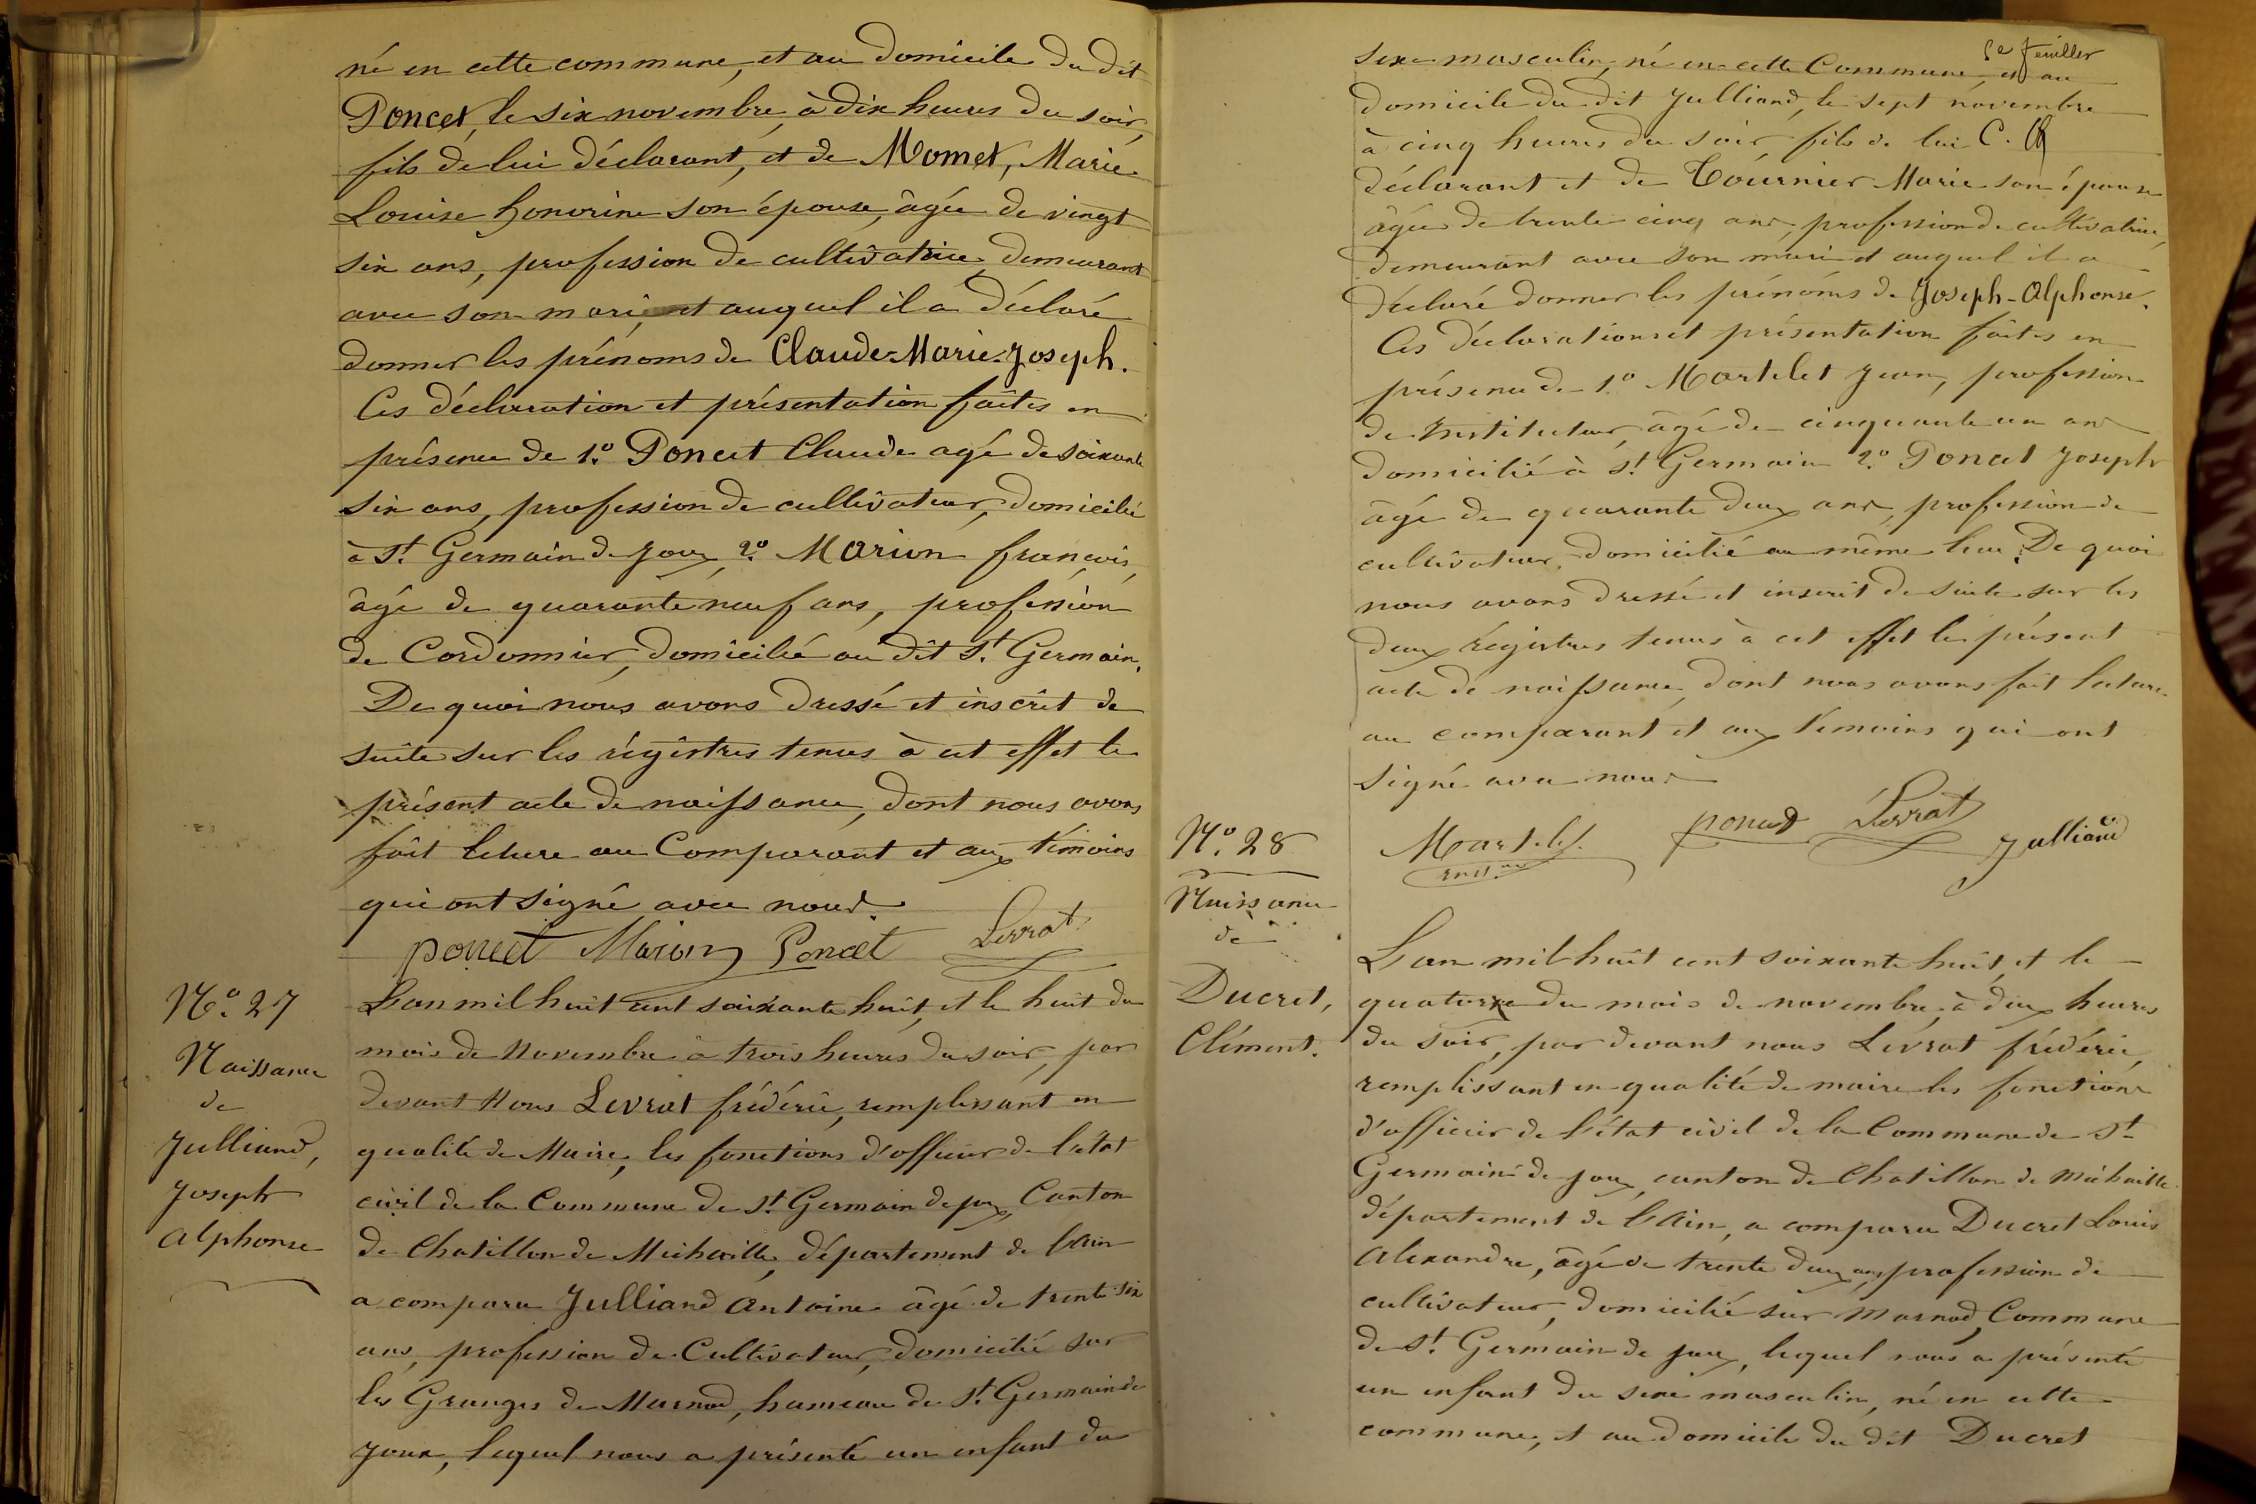 né en cette commune, et au domicile du dit
Poncet, le six novembre, à dix heures du soir,
fils de lui déclarant, et de Momet, Marie
Louise honorine son épouse, âgée de vingt
six ans, profession de cultivatrice, demeurant
avec son mari, et auquel il a déclaré
donner les prénoms de Claude-Marie-Joseph.
Ces déclaration et présentation faites en
présence de 1º. Poncet Claude agé de soixante
six ans, profession de cultivateur, domicilié
à St. Germain de Joux, 2º. Marion françois,
âgé de quarante neuf ans, profession
de Cordonnier, domicilié au dit St. Germain.
De quoi nous avons dressé et inscrit de
suite sur les régistres tenus à cet effet le
présent acte de naissance, dont nous avons
fait lecture au Comparant et aux témoins
qui ont signé avec nous.
poncet Marion Poncet Levrat
Nº. 27
Naissance
de
Julliand,
Joseph
Alphonse
L'an mil huit cent soixante huit, et le huit du
mois de Novembre à trois heures du soir, par
devant Nous Levrat frédéric, remplissant en
qualité de Maire, les fonctions d'officier de l'état
civil de la Commune de St. Germain de joux, Canton
de Chatillon de Michaille, département de l'Ain
a comparu Julliand Antoine âgé de trente six
ans, profession de Cultivateur, domicilié sur
les Granges de Marnod, hameau de St. Germain de
Joux, lequel nous a présenté un enfant du
5e feuillet
sexe masculin, né en cette Commune, et au
domicile du dit Julliand, le sept novembre
à cinq heures du soir, fils de lui C.
déclarant et de Tournier Marie son épouse
âgée de trente cinq ans, profession de cultivatrice,
demeurant avec son mari et auquel il a
déclaré donner les prénoms de Joseph-Alphonse.
Ces déclaration et présentation faites en
présence de 1º Martelet Jean, profession
de Instituteur, âgé de cinquante un ans
domicilié à St. Germain 2º. Poncet Joseph
âgé de quarante deux ans, profession de
cultivateur, domicilié au même lieu. De quoi
nous avons dressé et inscrit de suite sur les
deux régistres tenus à cet effet le présent
acte de naissance, dont nous avons fait lecture
au comparant et aux témoins qui ont
signé avec nous
Martelet poncet Levrat Julliand
Nº. 28
Naissance
de
Ducret,
Clément.
L'an mil huit cent soixante huit, et le
quatorze du mois de novembre, à deux heures
du soir, par devant nous Levrat frédéric,
remplissant en qualité de maire les fonctions
d'officier de l'état civil de la Commune de St
Germain de joux, canton de Chatillon de Michaille
département de l'Ain, a comparu Ducret Louis
Alexandre, âgé de trente deux ans, profession de
cultivateur, domicilié sur Marnod, Commune
de St. Germain de joux, lequel nous a présenté
un enfant du sexe masculin, né en cette
commune, et au domicile du dit Ducret